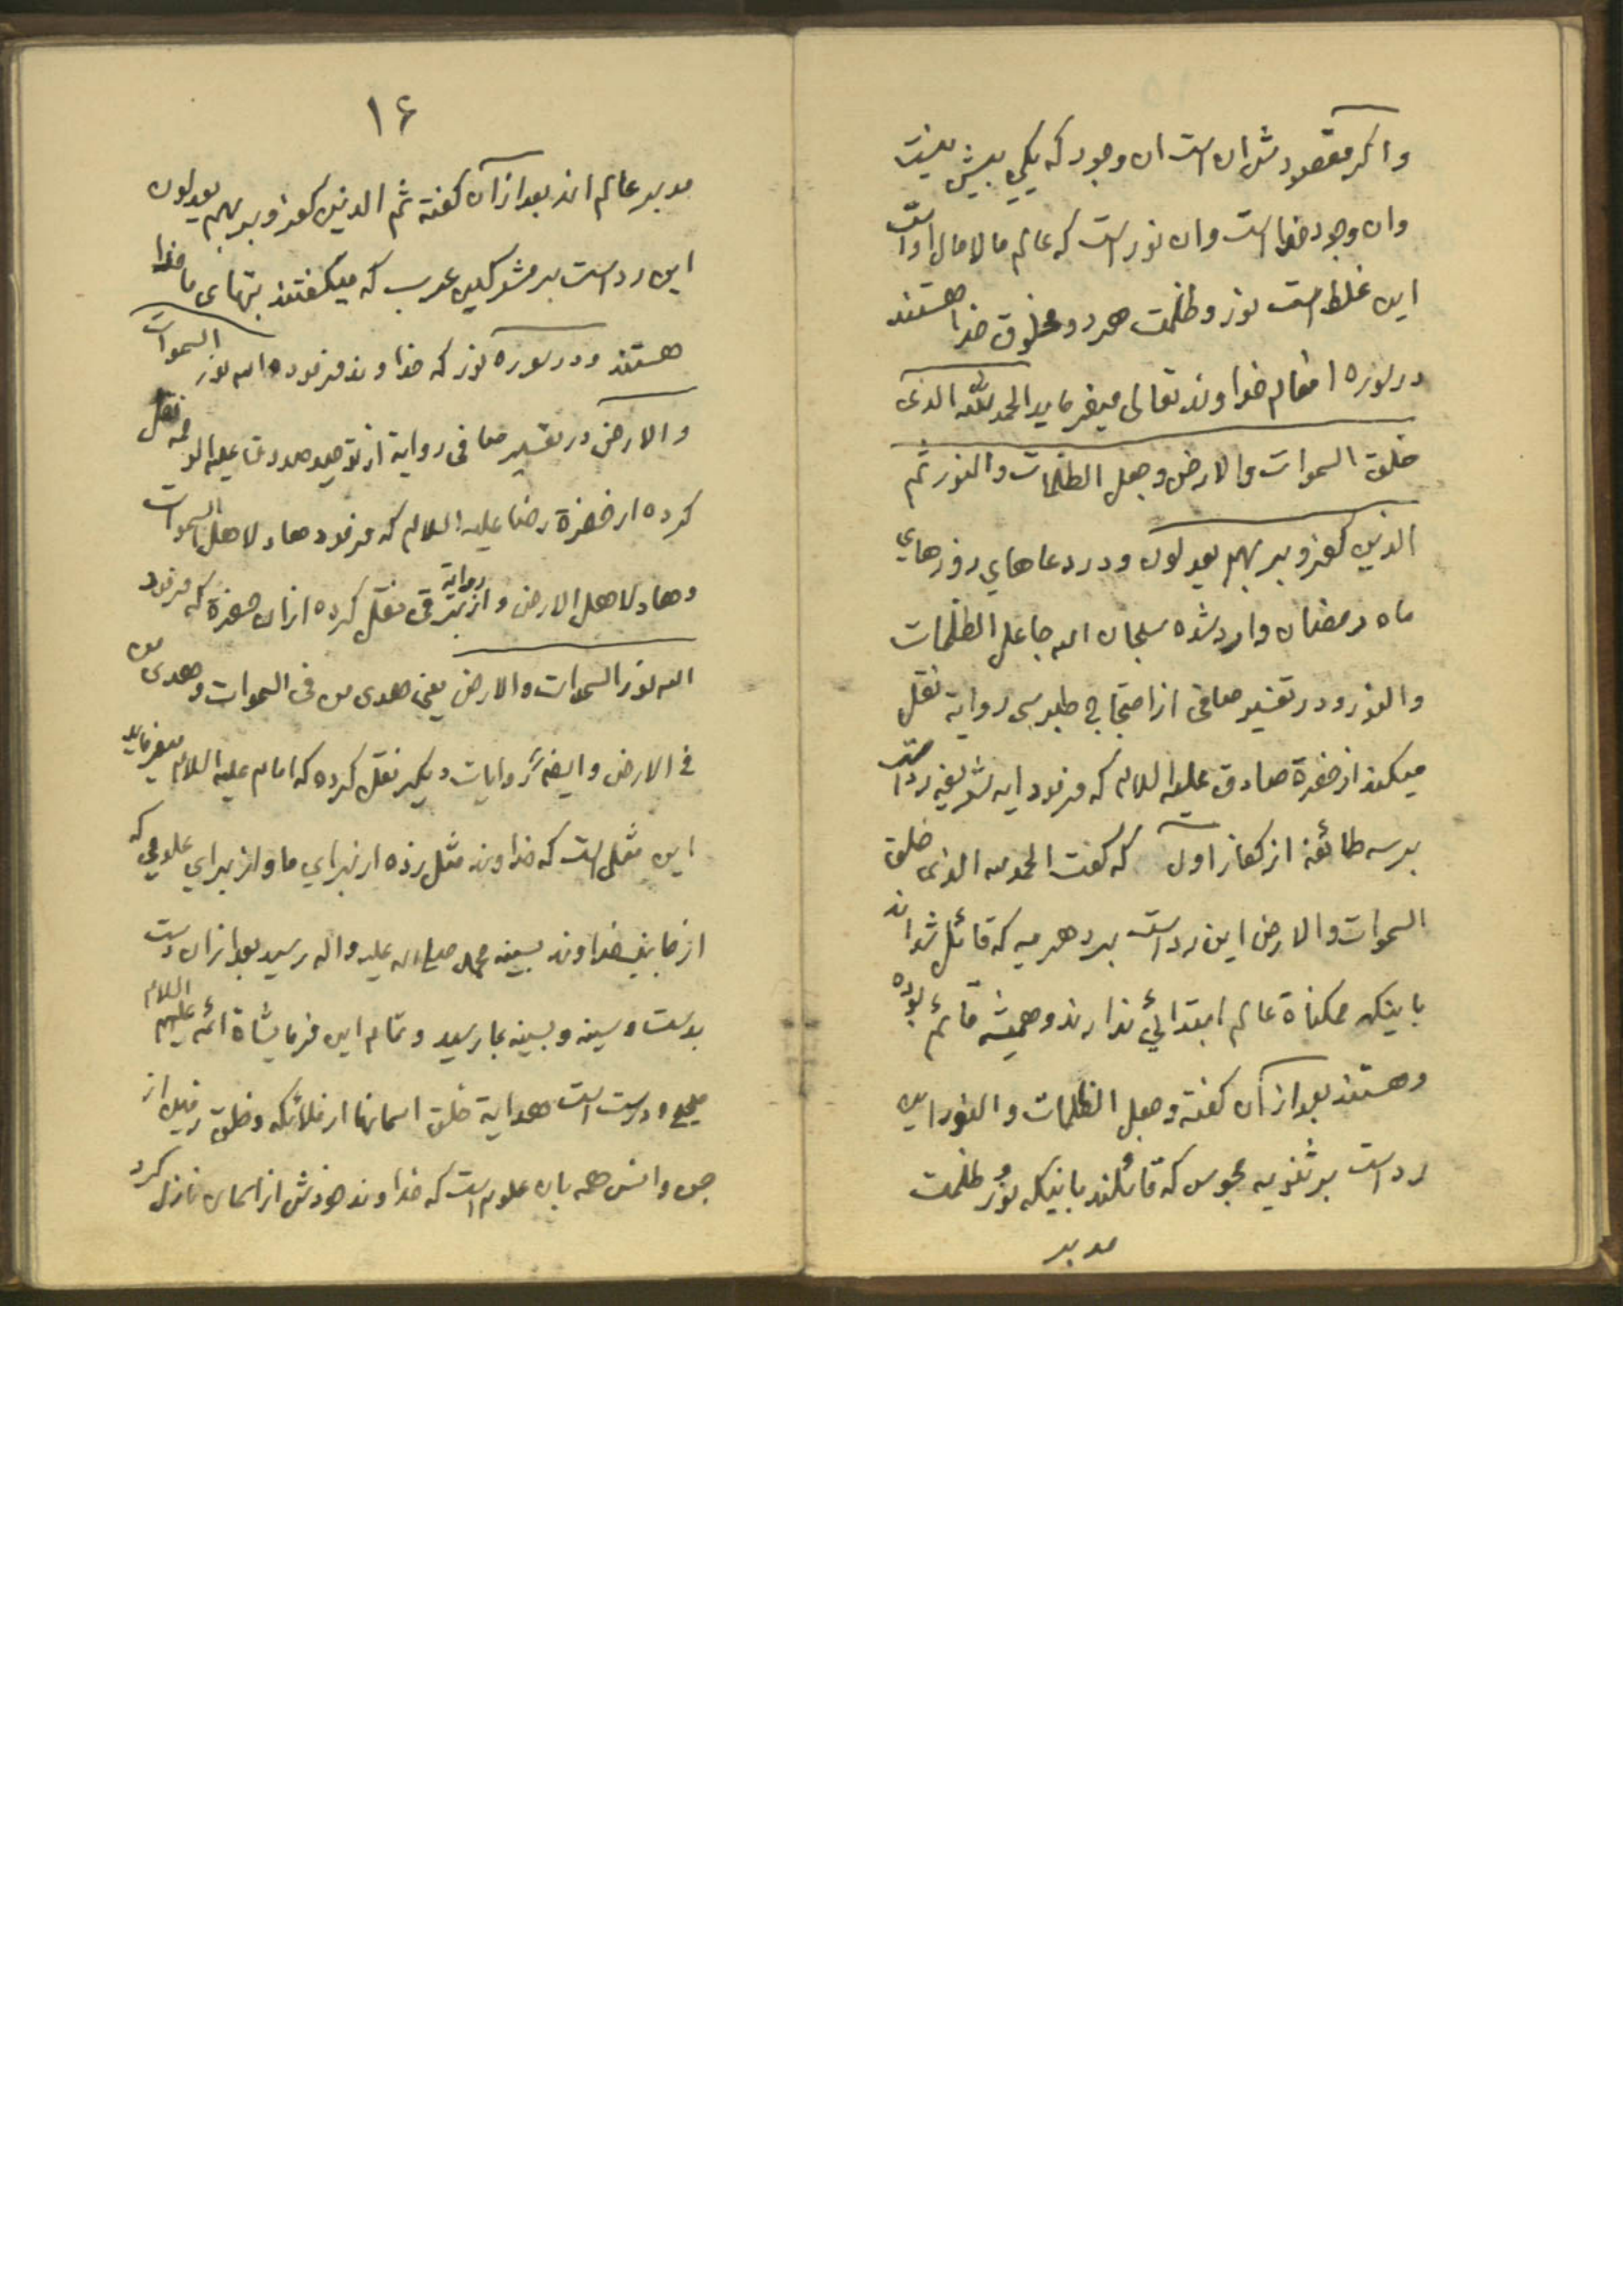 واكر مقصودش ان است ان وجود كه يكي بيش نيست
وان وجود خدا است وان نور است كه عالم مالامال اواست
اين غلط است نور و ظلمت هردو مخلوق خدا هستند
در سوره انعام خداوند تعالى ميفرمايد الحمد لله الذى
خلق السموات والارض وجعل الظلمات والنور ثم
الذين كفرو بربهم يعدلون ودر دعاهاي روزهاي
ماه رمضان وارد شده سبحان الله جاعل الظلمات
والنور ودر تفسير صافى از احتجاج طبرسى رواية نقل
ميكند از حضرة صادق عليه السلام كه فرمود ايه شريفه رد است
بر سه طائفه از كفار اول كه گفت الحمد لله الذى خلق
السموات والارض اين رد است بر دهريه كه قائل شده اند
باينكه ممكناة عالم ابتدائي ندارند وهميشه قائم بوده
وهستند بعد از آن كفته وجعل الظلمات والنور اين
رد است بر ثنويه مجوس كه قائلند باينكه نور و ظلمت
مدبر
١٦
مدبر عالم اند بعد از آن كفته ثم الذين كفرو بربهم يعدلون
اين رد است بر مشركين عرب كه ميكفتند بتهاى ما خدا
هستند ودر سوره نور كه خداوند فرموده الله نور السموات
والارض در تفسير صافى رواية از توحيد صدوق عليه الرحمه نقل
كرده از حضرة رضا عليه السلام كه فرمود هاد لاهل السموات
وهاد لاهل الارض و از برقى رواية نقل كرده از ان حضرة كه فرمود
الله نور السموات والارض يعنى هدى من فى السموات وهدى من
في الارض وايضا روايات ديكر نقل كرده كه امام عليه السلام ميفرمايد
اين مثل است كه خداوند مثل زده از براي ما واز براي علومي كه
از جانب خداوند بسينه محمد صلى الله عليه واله رسيد بعد از ان دست
بدست وسينه وبسينه بما رسيد وتمام اين فرمايشاة ائمه عليهم السلام
صحيح ودرست است هداية خلق اسمانها از ملائكه وخلق زمين از
جن وانس همه بان علوم است كه خداوند خودش از اسمان نازل كرد